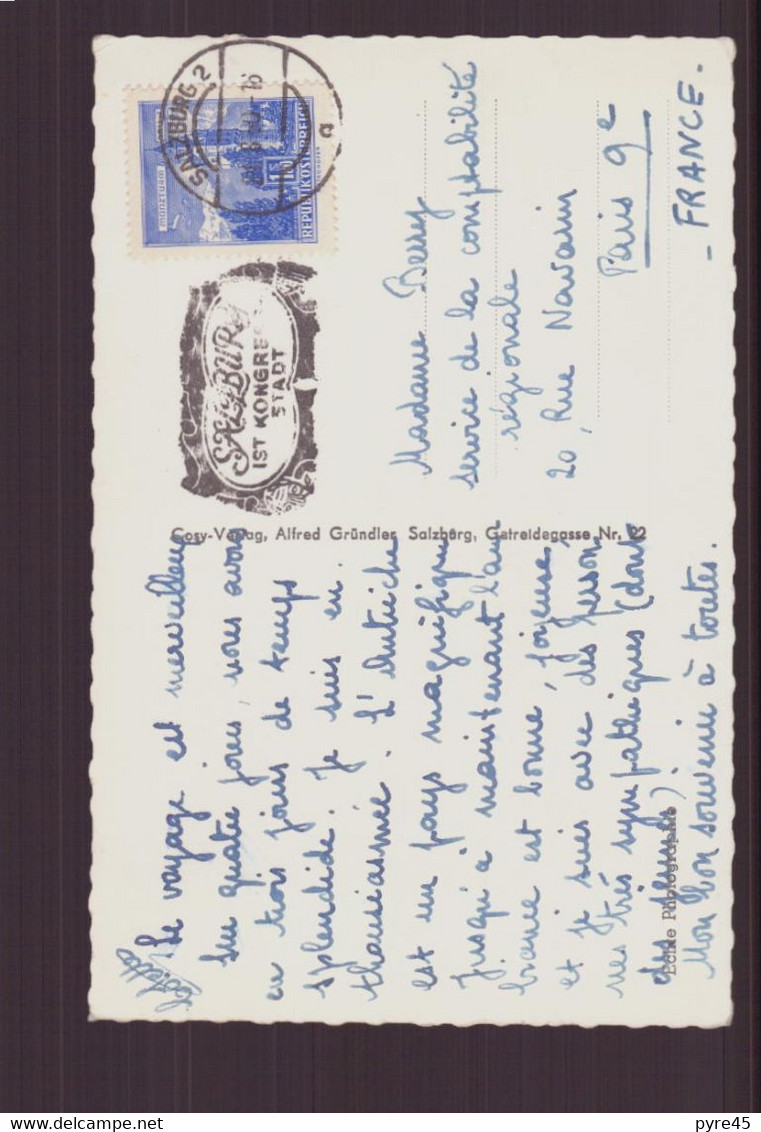 SALZBURG 2
a
REPUBLIK ÖSTERREICH
SALZBURG
IST KONGRESS
STADT
Cosy-Verlag, Alfred Gründler, Salzburg, Getreidegasse Nr. 22
Echte Photographie
Le voyage est merveilleux
Sur quatre jours, nous avons
eu trois jours de temps
splendide. Je suis en
thousiasmée. L'Autriche
est un pays magnifique
Jusqu'à maintenant l'am
biance est bonne, joyeuse,
et je suis avec des person
nes très sympathiques (dont
des jeunes).
Mon bon souvenir à toutes.
Madame Berry
service de la comptabilité
régionale
20, Rue Navarin
Paris 9e
- FRANCE -
delcampe.net
pyre45